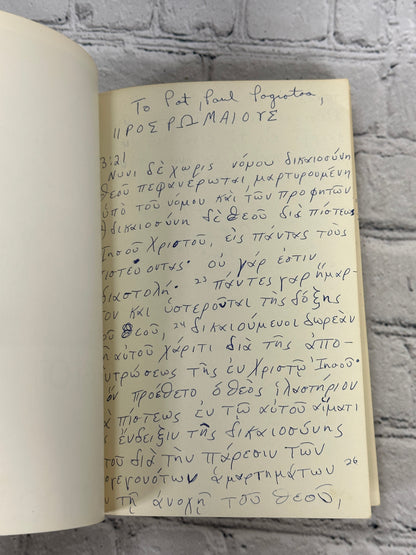 To Pat, Paul Pagiotas,
ΠΡΟΣ ΡΩΜΑΙΟΥΣ
3:21
Νυνι δὲ χωρις νόμου δικαιοσύνη
θεοῦ πεφανέρωται, μαρτυρουμένη
ὑπὸ τοῦ νόμου καὶ τῶν προφητῶν
δικαιοσύνη δὲ θεοῦ διὰ πίστεως
Ιησοῦ Χριστοῦ, εἰς πάντας τοὺς
πιστεύοντας· οὐ γάρ ἐστιν
διαστολή. 23 πάντες γὰρ ἥμαρ-
τον και ὑστεροῦνται τῆς δόξης
τοῦ θεοῦ, 24 δικαιούμενοι δωρεὰν
τῇ αὐτοῦ χάριτι διὰ τῆς ἀπο-
λυτρώσεως τῆς ἐν Χριστῷ Ἰησοῦ·
ὃν προέθετο ὁ θεὸς ἱλαστήριον
διὰ πίστεως ἐν τῷ αὐτοῦ αἵματι
εἰς ἔνδειξιν τῆς δικαιοσύνης
αὐτοῦ διὰ τὴν πάρεσιν τῶν
προγεγονότων ἁμαρτημάτων 26
ἐν τῇ ἀνοχῇ τοῦ θεοῦ,